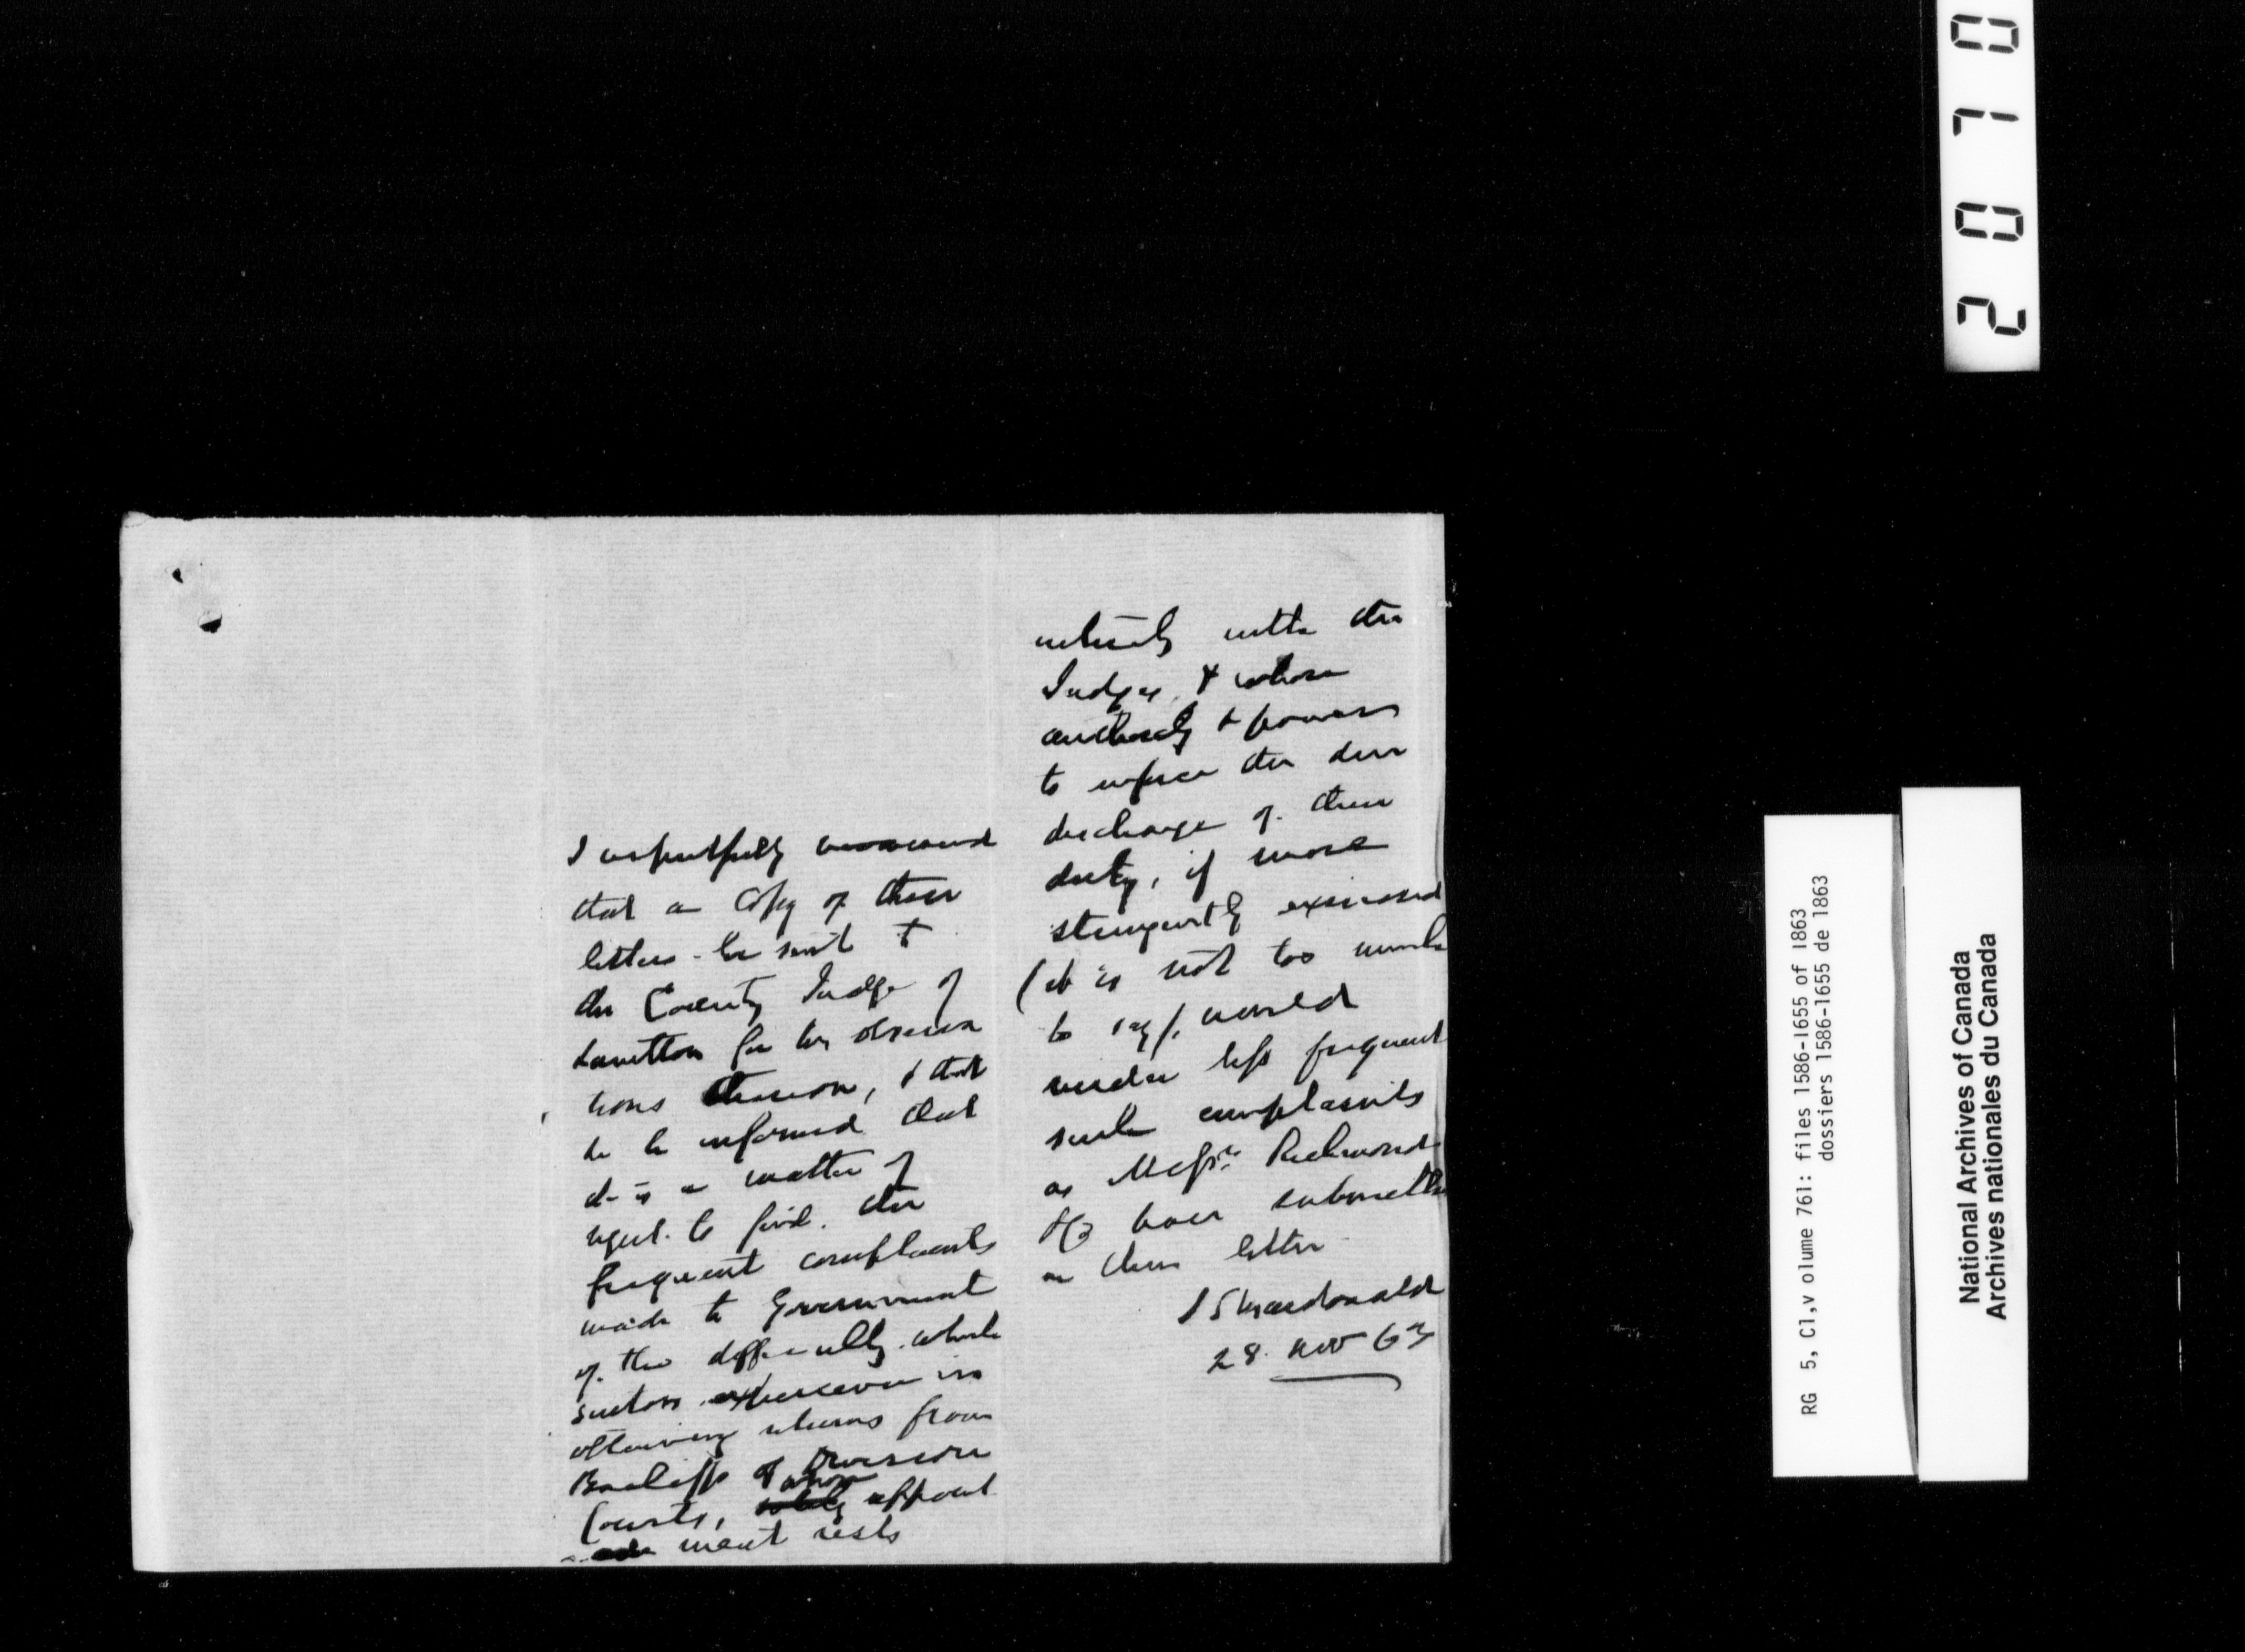 I respectfully recommend
that a Copy of these
letters - be sent to
the County Judge of
for his observa
tions thereon, & that
he be informed that
it is a matter of
regret to find the
frequent complaints
made to Government
of the difficulty which
suitors experience in
obtaining returns from
Bailiffs of Division
Courts, whose appoint
ment rests
entirely with the
Judges, & whose
authority & powers
to enforce the due
discharge of their
duty, if more
stringently exercised
(it is not too much
to say), would
render less frequent
such complaints
as Messrs. Richmond
&Co have submitted
in their letter
J S Macdonald
28. Nov 63
National Archives of Canada
Archives nationales du Canada
RG 5, C1,v olume 761: files 1586-1655 of 1863
dossiers 1586-1655 de 1863
2070